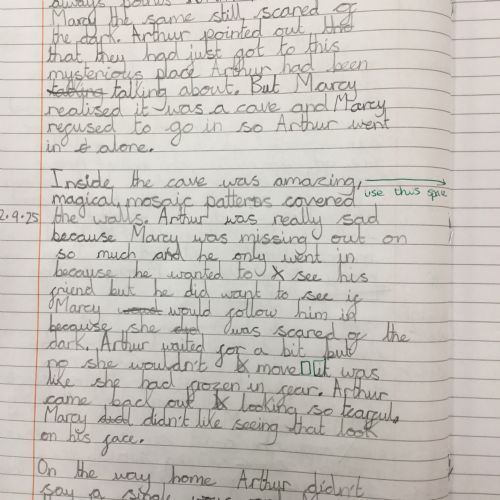 always pours
Marcy the same still, scared of
the dark. Arthur pointed out the
that they had just got to this
mysterious place Arthur had been
talking about. But Marcy
realised it was a cave and Marcy
refused to go in so Arthur went
in alone.
Inside the cave was amazing,
use this space
magical, mosaic patterns covered
2.9.25
the walls. Arthur was really sad
because Marcy was missing out on
so much and he only went in
because he wanted to see his
friend but he did want to see if
Marcy would follow him in
because she was scared of the
dark. Arthur waited for a bit but
no she wouldn't move it was
like she had frozen in fear. Arthur
came back out looking so tearful,
Marcy didn't like seeing that look
on his face.
On the way home Arthur didn't
say a single